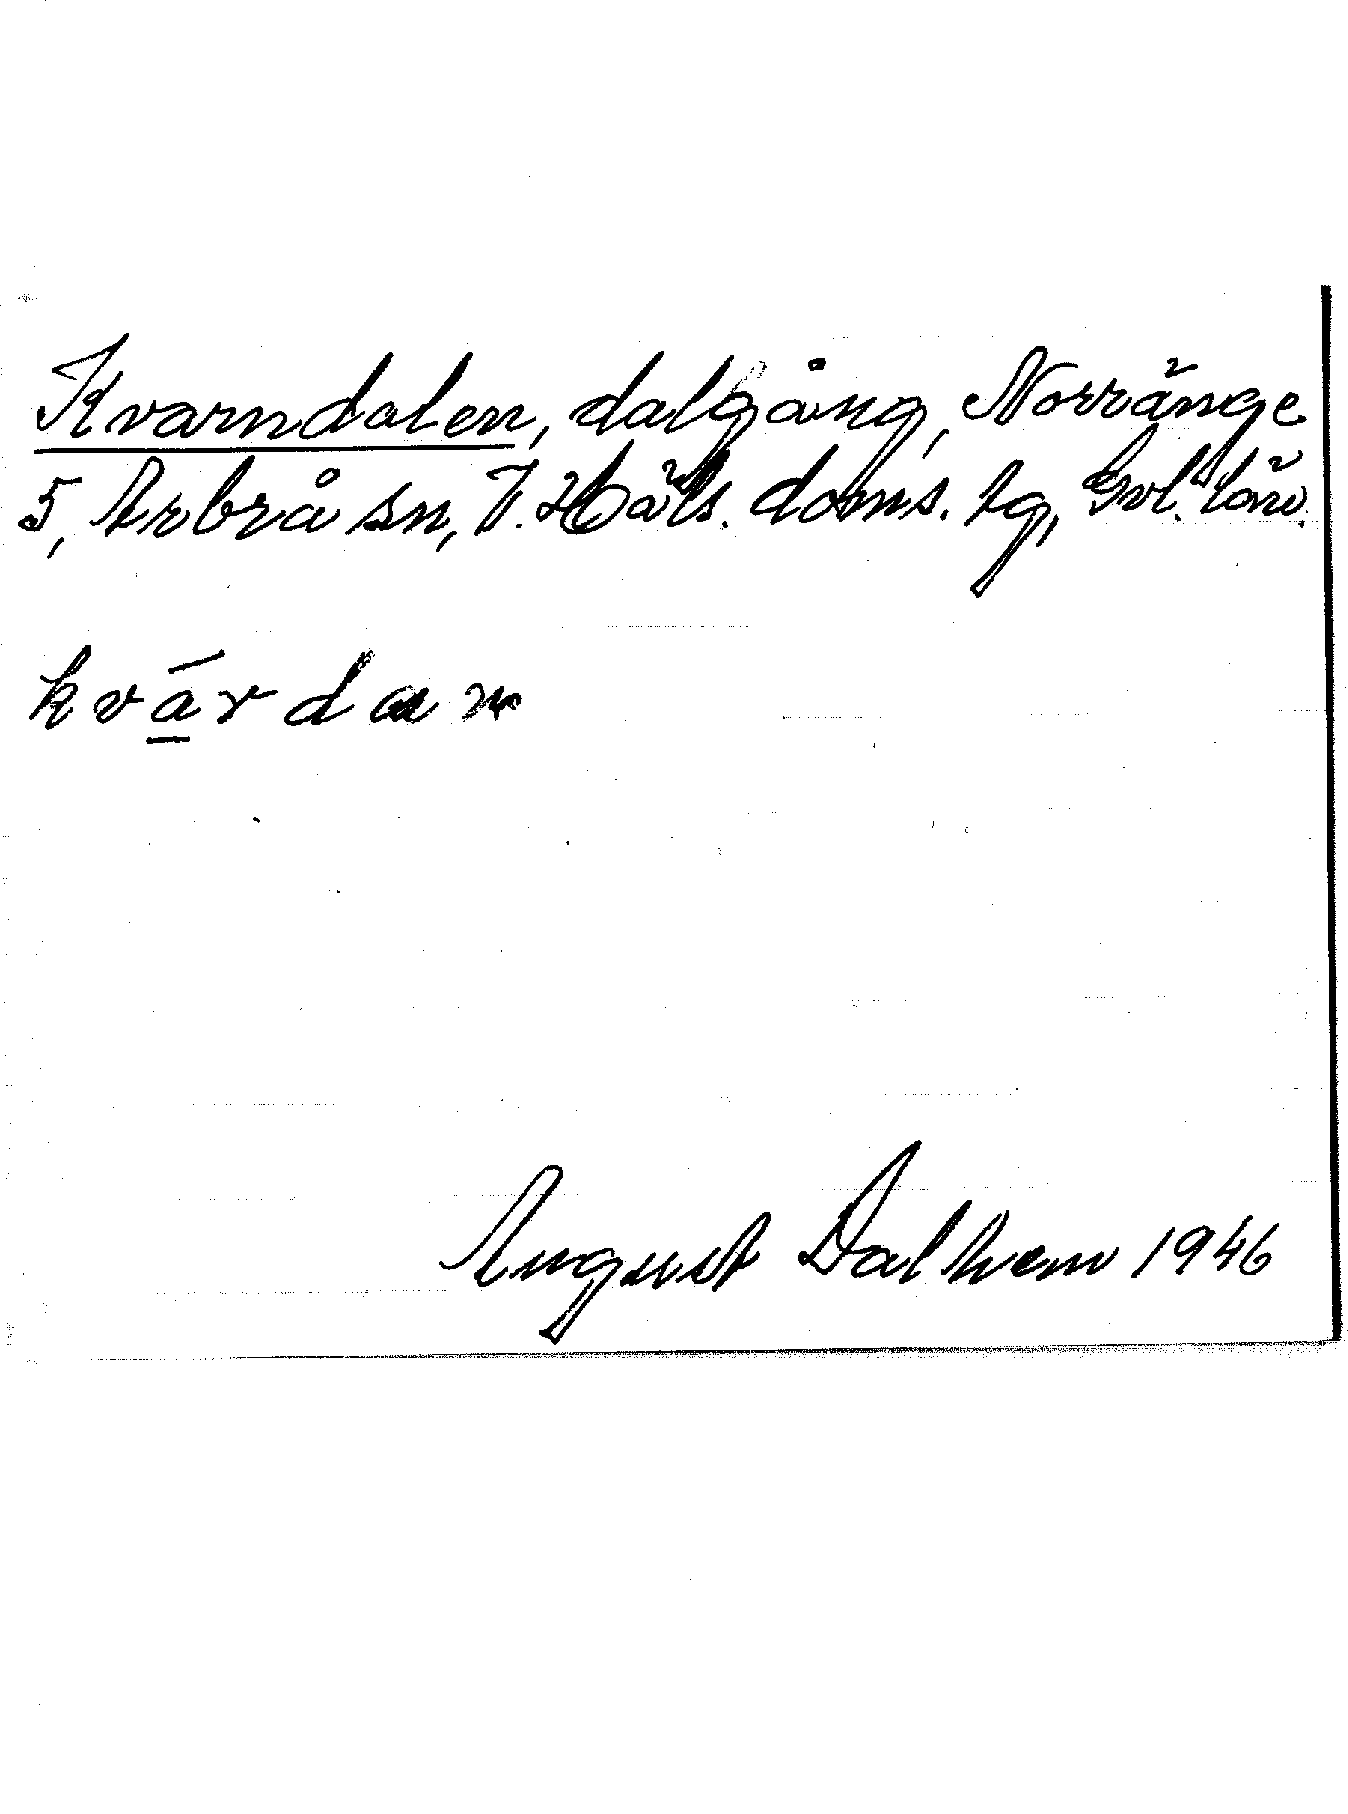 Kvarndalen, dalgång, Norränge
5, Arbrå sn, V. Häls. doms. tg, Gvl. län.
kvárdan
August Dalhem 1946